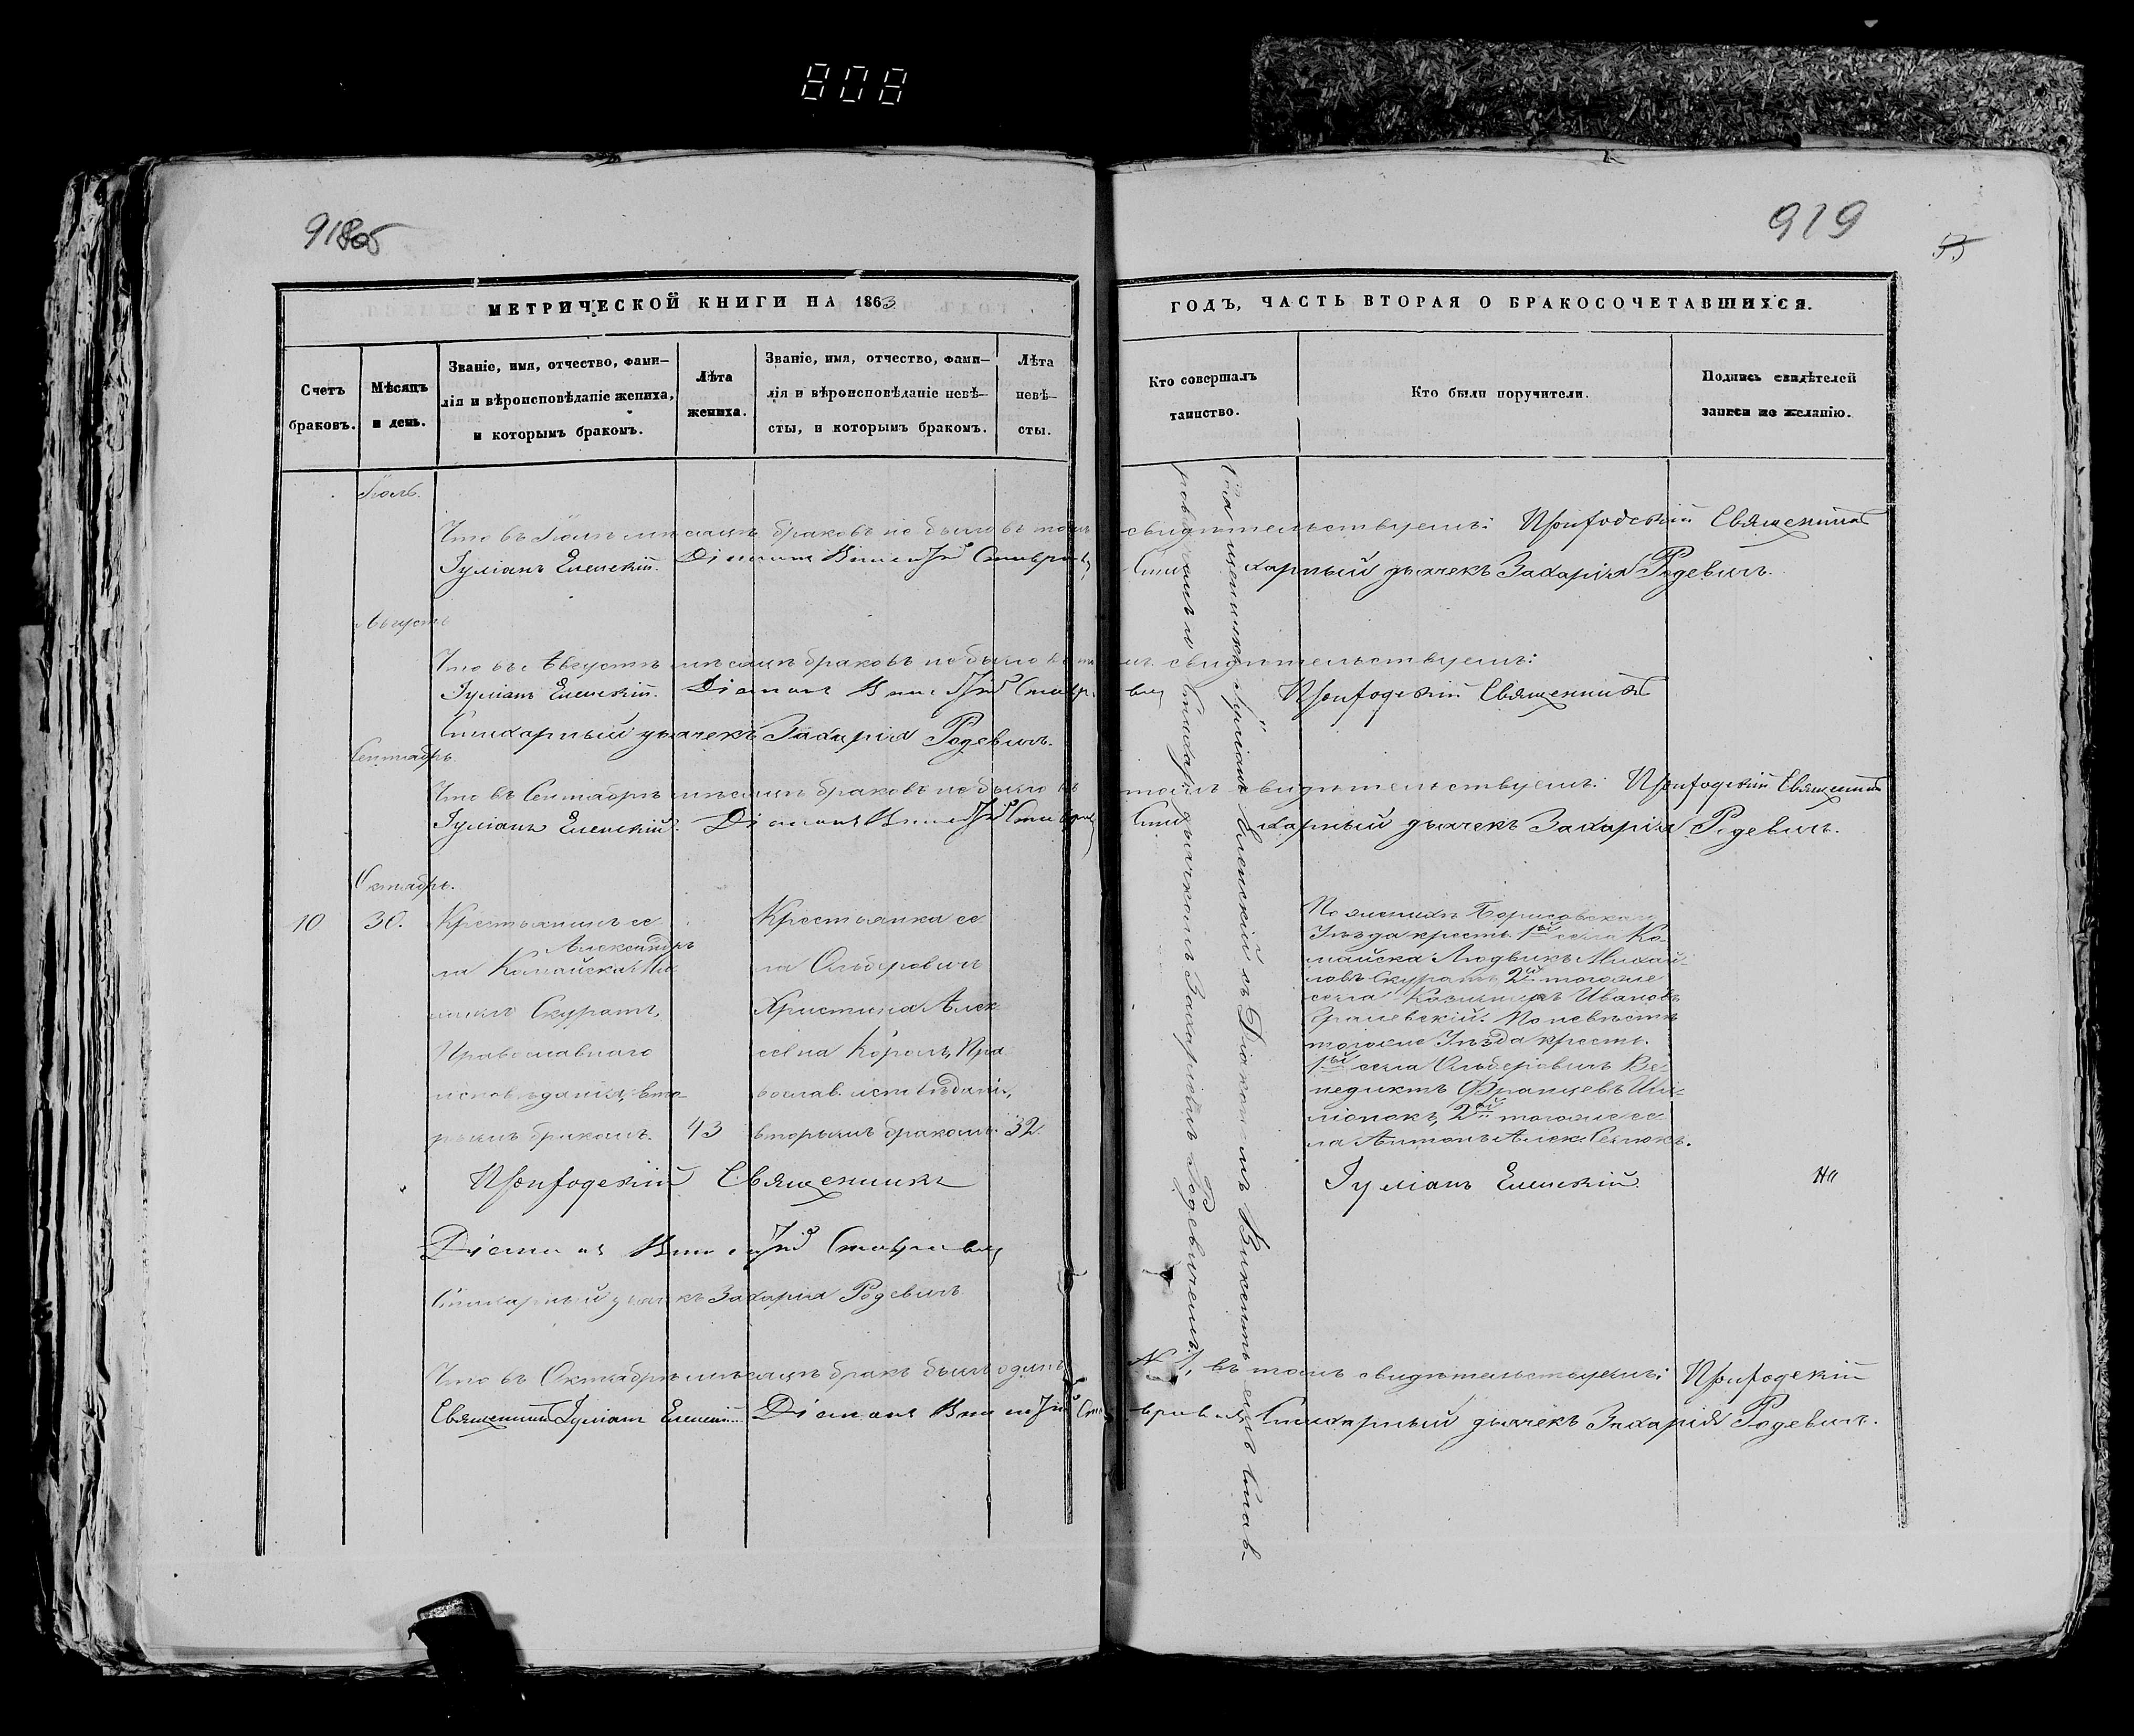 808
918об
919
МЕТРИЧЕСКОЙ КНИГИ НА 1863
ГОДЪ, ЧАСТЬ ВТОРАЯ О БРАКОСОЧЕТАВШИХСЯ.
Счетъ
браковъ.
Мѣсяцъ
и день.
Званіе, имя, отчество, фами–
лія и вѣроисповѣданіе жениха,
и которымъ бракомъ.
Лѣта
жениха.
Званіе, имя, отчество, фами–
лія и вѣроисповѣданіе невѣ–
сты, и которымъ бракомъ.
Лѣта
невѣ–
сты.
Кто совершалъ
таинство.
Кто были поручители.
Подпись свидѣтелей
записи по желанію.
Іюль.
Что въ Іюлѣ мѣсяцѣ браковъ не было въ томъ свидѣтельствуемъ: Приходскій Священникъ
Іуліанъ Еленскій. Діаконъ Ставровъ Стихарный дьячекъ Захарія Родевичъ.
Августъ
Что въ Августѣ мѣсяцѣ браковъ не было въ томъ свидѣтельствуемъ:
Іуліанъ Еленскій. Діаконъ Приходскій Священникъ
Стихарный дьячекъ Захарія Родевичъ.
Сентябрь.
Что въ Сентябрѣ мѣсяцѣ браковъ не было въ томъ свидѣтельствуемъ: Приходскій Священникъ
Іуліанъ Еленскій. Діаконъ Стихарный дьячекъ Захарія Родевичъ.
Октябрь.
10
30.
Крестьянинъ се
Александръ
ла Комайска
Скуратъ,
Православнаго
исповѣданія, вто–
рымъ бракомъ.
43
Крестьянка се
ла
Христина Алек
сѣевна Король, Пра
вослав. исповѣданія,
вторымъ бракомъ.
32.
Священникъ Іуліанъ Еленскій съ Діакономъ Викентіемъ Став–
ровичемъ и Стихар. дьячкомъ Захаріемъ Родевичемъ.
По женихѣ Борисовскаго
Уѣзда крест. 1ый села Ко–
майска Людвикъ Михай–
ловъ Скуратъ, 2й тогоже
села Казимиръ Ивановъ
По невѣстѣ
тогоже Уѣзда крест.
1ый села Ве–
недиктъ Францевъ
2ой тогоже се
ла Антонъ Алек.
Приходскій Священникъ
Іуліанъ Еленскій
Діаконъ
Стихарный дьячекъ Захарія Родевичъ
Что въ Октябрѣ мѣсяцѣ бракъ былъ одинъ № 1, въ томъ свидѣтельствуемъ: Приходскій
Священникъ Іуліанъ Еленскій. Діаконъ Стихарный дьячекъ Захарія Родевичъ.